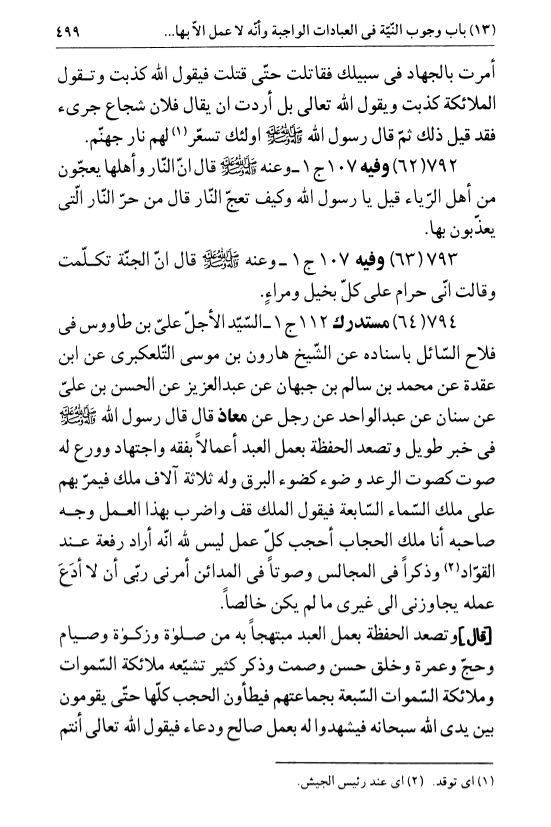 (۱۳) باب وجوب النّيّة فى العبادات الواجبة وأنّه لا عمل الاّ بها... ۴۹۹
أمرت بالجهاد فى سبيلك فقاتلت حتّى قتلت فيقول الله كذبت وتـقول
الملائكة كذبت ويقول الله تعالى بل أردت ان يقال فلان شجاع جرىء
فقد قيل ذلك ثمّ قال رسول الله ﷺ اولئك تسعّر(۱) لهم نار جهنّم.
۷۹۲ (۶۲) وفيه ۱۰۷ ج ۱ ـ وعنه ﷺ قال انّ النّار وأهلها يعجّون
من أهل الرّياء قيل يا رسول الله وكيف تعجّ النّار قال من حرّ النّار الّتى
يعذّبون بها.
۷۹۳ (۶۳) وفيه ۱۰۷ ج ۱ ـ وعنه ﷺ قال انّ الجنّة تكـلّمت
وقالت انّى حرام على كلّ بخيل ومراءٍ.
۷۹۴ (۶۴) مستدرك ۱۱۲ ج ۱ ـ السّيّد الأجلّ علىّ بن طاووس فى
فلاح السّائل باسناده عن الشّيخ هارون بن موسى التّلعكبرى عن ابن
عقدة عن محمد بن سالم بن جبهان عن عبدالعزيز عن الحسن بن علىّ
عن سنان عن عبدالواحد عن رجل عن معاذ قال قال رسول الله ﷺ
فى خبر طويل وتصعد الحفظة بعمل العبد أعمالاً بفقه واجتهاد وورع له
صوت كصوت الرعد و ضوء كضوء البرق وله ثلاثة آلاف ملك فيمرّ بهم
على ملك السّماء السّابعة فيقول الملك قف واضرب بهذا العـمل وجـه
صاحبه أنا ملك الحجاب أحجب كلّ عمل ليس لله انّه أراد رفعة عـنـد
القوّاد(۲) وذكراً فى المجالس وصوتاً فى المدائن أمرنى ربّى أن لا أدَعَ
عمله يجاوزنى الى غيرى ما لم يكن خالصاً.
[قال] وتصعد الحفظة بعمل العبد مبتهجاً به من صـلوٰة وزكـوٰة وصـيام
وحجّ وعمرة وخلق حسن وصمت وذكر كثير تشيّعه ملائكة السّموات
وملائكة السّموات السّبعة بجماعتهم فيطأون الحجب كلّها حتّى يقومون
بين يدى الله سبحانه فيشهدوا له بعمل صالح ودعاء فيقول الله تعالى أنتم
(۱) اى توقد. (۲) اى عند رئيس الجيش.